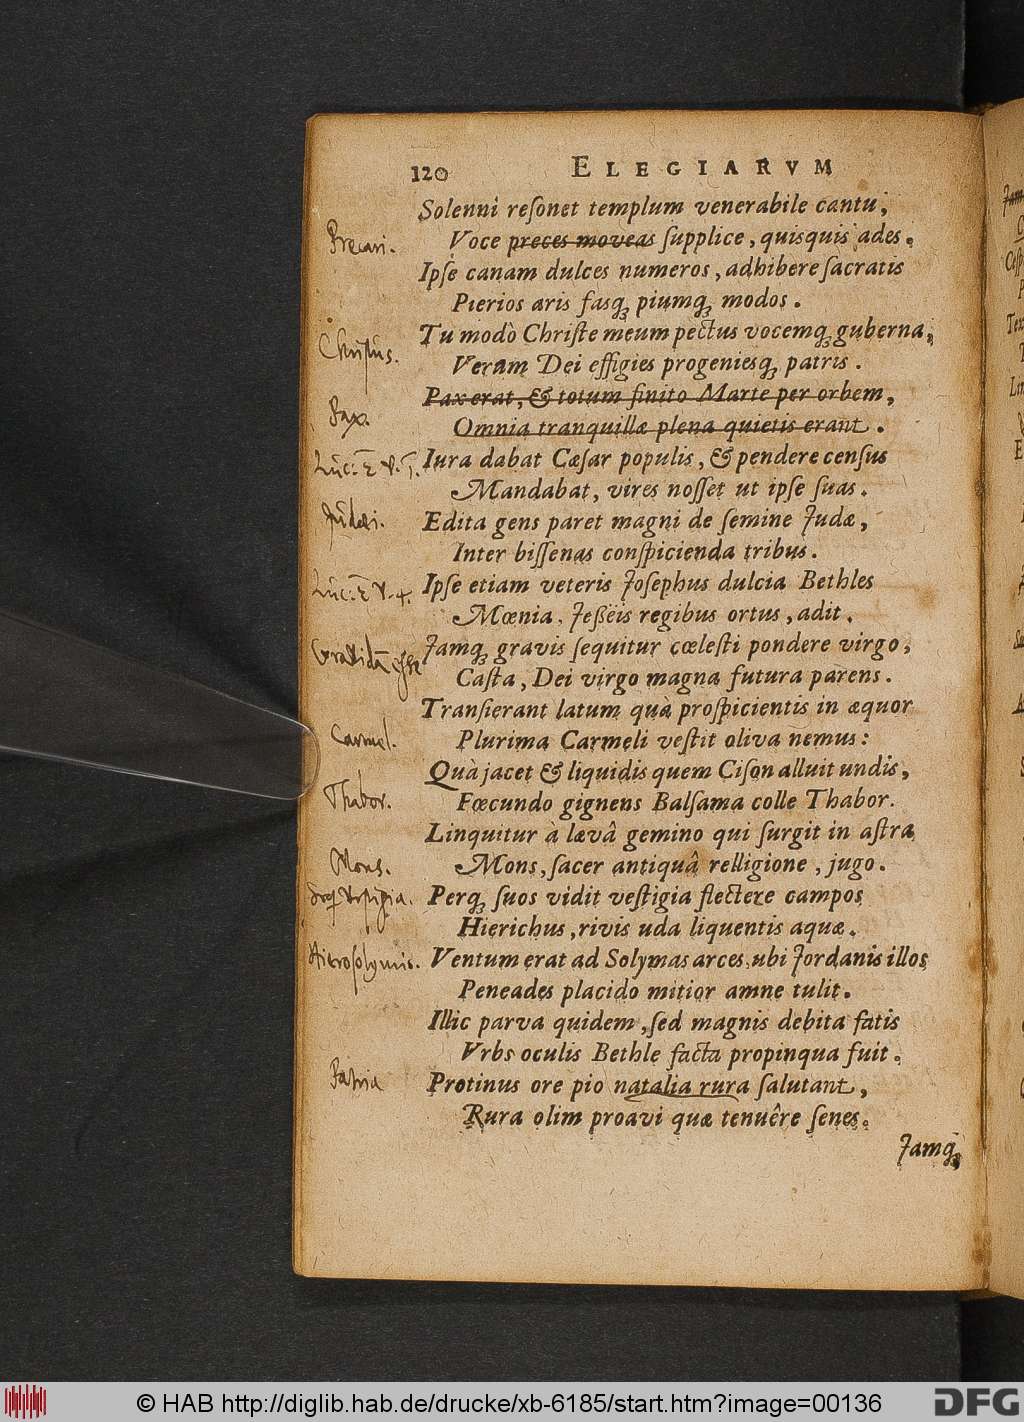 120 ELEGIARVM
Solenni reſonet templum venerabile cantu,
Precari. Voce preces moveas ſupplice, quisquis ades.
Ipſe canam dulces numeros, adhibere ſacratis
Pierios aris fasq́ꝫ piumq́ꝫ modos.
Christus. Tu modò Chriſte meum pectus vocemq́ꝫ guberna,
Veram Dei effigies progeniesq́ꝫ patris.
Pax. Pax erat, & totum finito Marte per orbem,
Omnia tranquillæ plena quietis erant.
Luc: 2 V. 1. Iura dabat Cæſar populis, & pendere cenſus
Mandabat, vires noſſet ut ipſe ſuas.
Judæi. Edita gens paret magni de ſemine Judæ,
Inter biſſenas conſpicienda tribus.
Luc: 2 V. 4. Ipſe etiam veteris Joſephus dulcia Bethles
Mœnia, Jeßëis regibus ortus, adit.
Gravidã eſſe Jamq́ꝫ gravis ſequitur cœleſti pondere virgo,
Caſta, Dei virgo magna futura parens.
Tranſierant latum quà proſpicientis in æquor
Carmel. Plurima Carmeli veſtit oliva nemus:
Quà jacet & liquidis quem Ciſon alluit undis,
Thabor. Fœcundo gignens Balſama colle Thabor.
Linquitur à lævâ gemino qui ſurgit in aſtra
Mons. Mons, ſacer antiquâ relligione, jugo.
Perq́ꝫ ſuos vidit veſtigia flectere campos
Hierichus, rivis uda liquentis aquæ.
Hierosolymis. Ventum erat ad Solymas arces, ubi Jordanis illos
Peneades placido mitior amne tulit.
Illic parva quidem, ſed magnis debita fatis
Vrbs oculis Bethle facta propinqua fuit.
Patria Protinus ore pio natalia rura ſalutant,
Rura olim proavi quæ tenuêre ſenes.
Jamq́ꝫ
© HAB http://diglib.hab.de/drucke/xb-6185/start.htm?image=00136 DFG